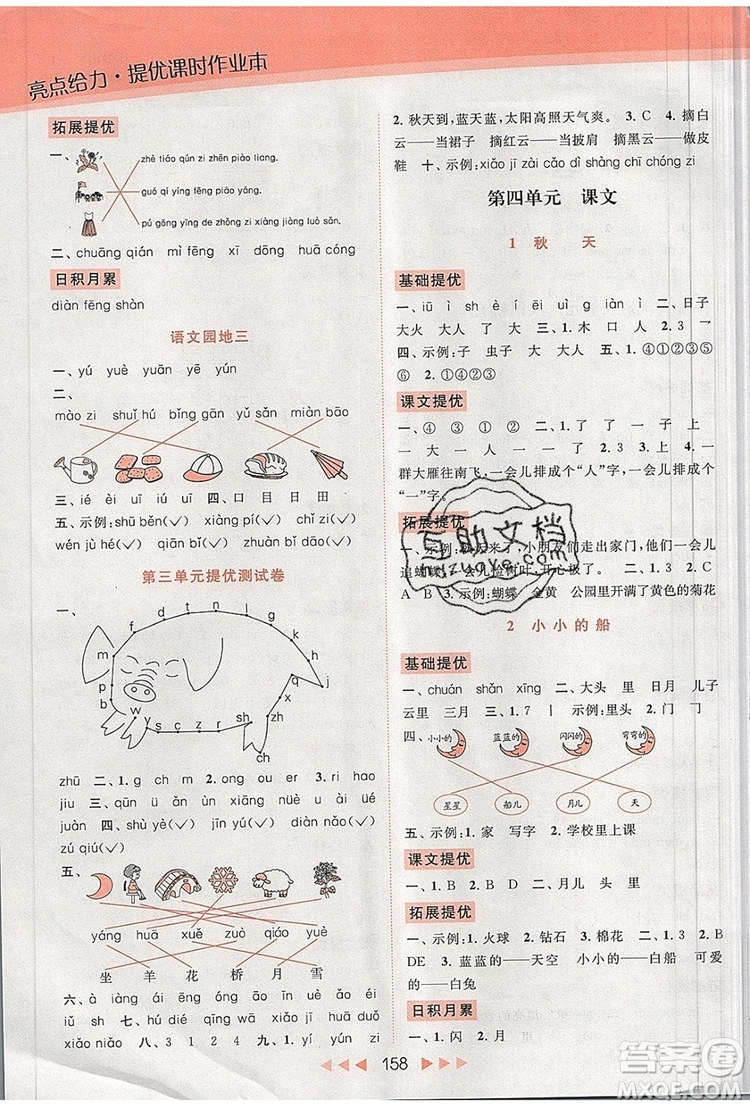 亮点给力·提优课时作业本
拓展提优
一、
zhè tiáo qún zi zhēn piào liang.
guó qí yíng fēng piāo yáng.
pú gōng yīng de zhǒng zi xiàng jiàng luò sǎn.
二、chuāng qián mì fēng xī dōng huā cóng
日积月累
diàn fēng shàn
语文园地三
一、yú yuè yuān yē yún
二、
mào zi shuǐ hú bǐng gān yǔ sǎn miàn bāo
三、ié èi uī iú uí 四、口 目 日 田
五、示例:shū běn(✓) xiàng pí(✓) chǐ zi(✓)
wén jù hé(✓) qiān bǐ(✓) juǎn bǐ dāo(✓)
第三单元提优测试卷
一、
m f d t n l g k h q j p b w y s c z r zh sh ch
zhū 二、1. g ch m q 2. ong ou er 3. hao
jiu 三、qūn ü ün xiāng nüè üè ài üé
yuán 四、shù yè(✓) jīn yú(✓) diàn nǎo(✓)
zú qiú(✓)
五、
yáng huā xuě zuò qiáo yuè
坐 羊 花 桥 月 雪
六、à iàng āi éng ōng én 七、yuè ér
zǒu yě 八、1. hú dié qīng wā xiǎo yā
xiǎo niǎo 2. 3 1 4 2 九、1. yí yún zi
2. 秋天到,蓝天蓝,太阳高照天气爽。 3. C 4. 摘白
云——当裙子 摘红云——当披肩 摘黑云——做皮
鞋 十、示例:xiǎo jī zài cǎo dì shàng chī chóng zi
第四单元 课文
1 秋 天
基础提优
一、iū ì shè í ēi uì ɡ iān 二、日子
大火 大人 了 大 三、1. 木 口 2. 3 乛
四、示例:子 虫子 大大 五、1. ①②③⑤
⑥ 2. ①④②③
课文提优
一、④ ③ ① ② 二、了 了 一 子 上
一 大 一 一 了 三、1. 人 一 2. 3 3. 一
群大雁往南飞,一会儿排成个“人”字,一会儿排成个
“一”字。
拓展提优
一、示例:秋天来了,小朋友们走出家门,他们一会儿
追蝴蝶,一会儿捡树叶,开心极了。 二、1. 3 2. C
A B 3. 示例:蝴蝶 金黄 公园里开满了黄色的菊花
2 小小的船
基础提优
一、chuán shǎn xīng 二、大头 里 日月 儿子
云里 三月 三、1. 7 丨 示例:里头 2. 门 ㇆
四、小小的 蓝蓝的 闪闪的 弯弯的
星星 船儿 月儿 天
五、示例:1. 家 写字 2. 学校里上课
课文提优
一、1. B B 2. D 二、月儿 头 里
拓展提优
一、示例:1. 火球 2. 钻石 3. 棉花 二、1. 3 2. B
DE 3. 蓝蓝的——天空 小小的——白船 可爱
的——白兔
日积月累
一、1. 闪 2. 月
158
互助文档
hizuoye.com
答案圈
MXQE.COM